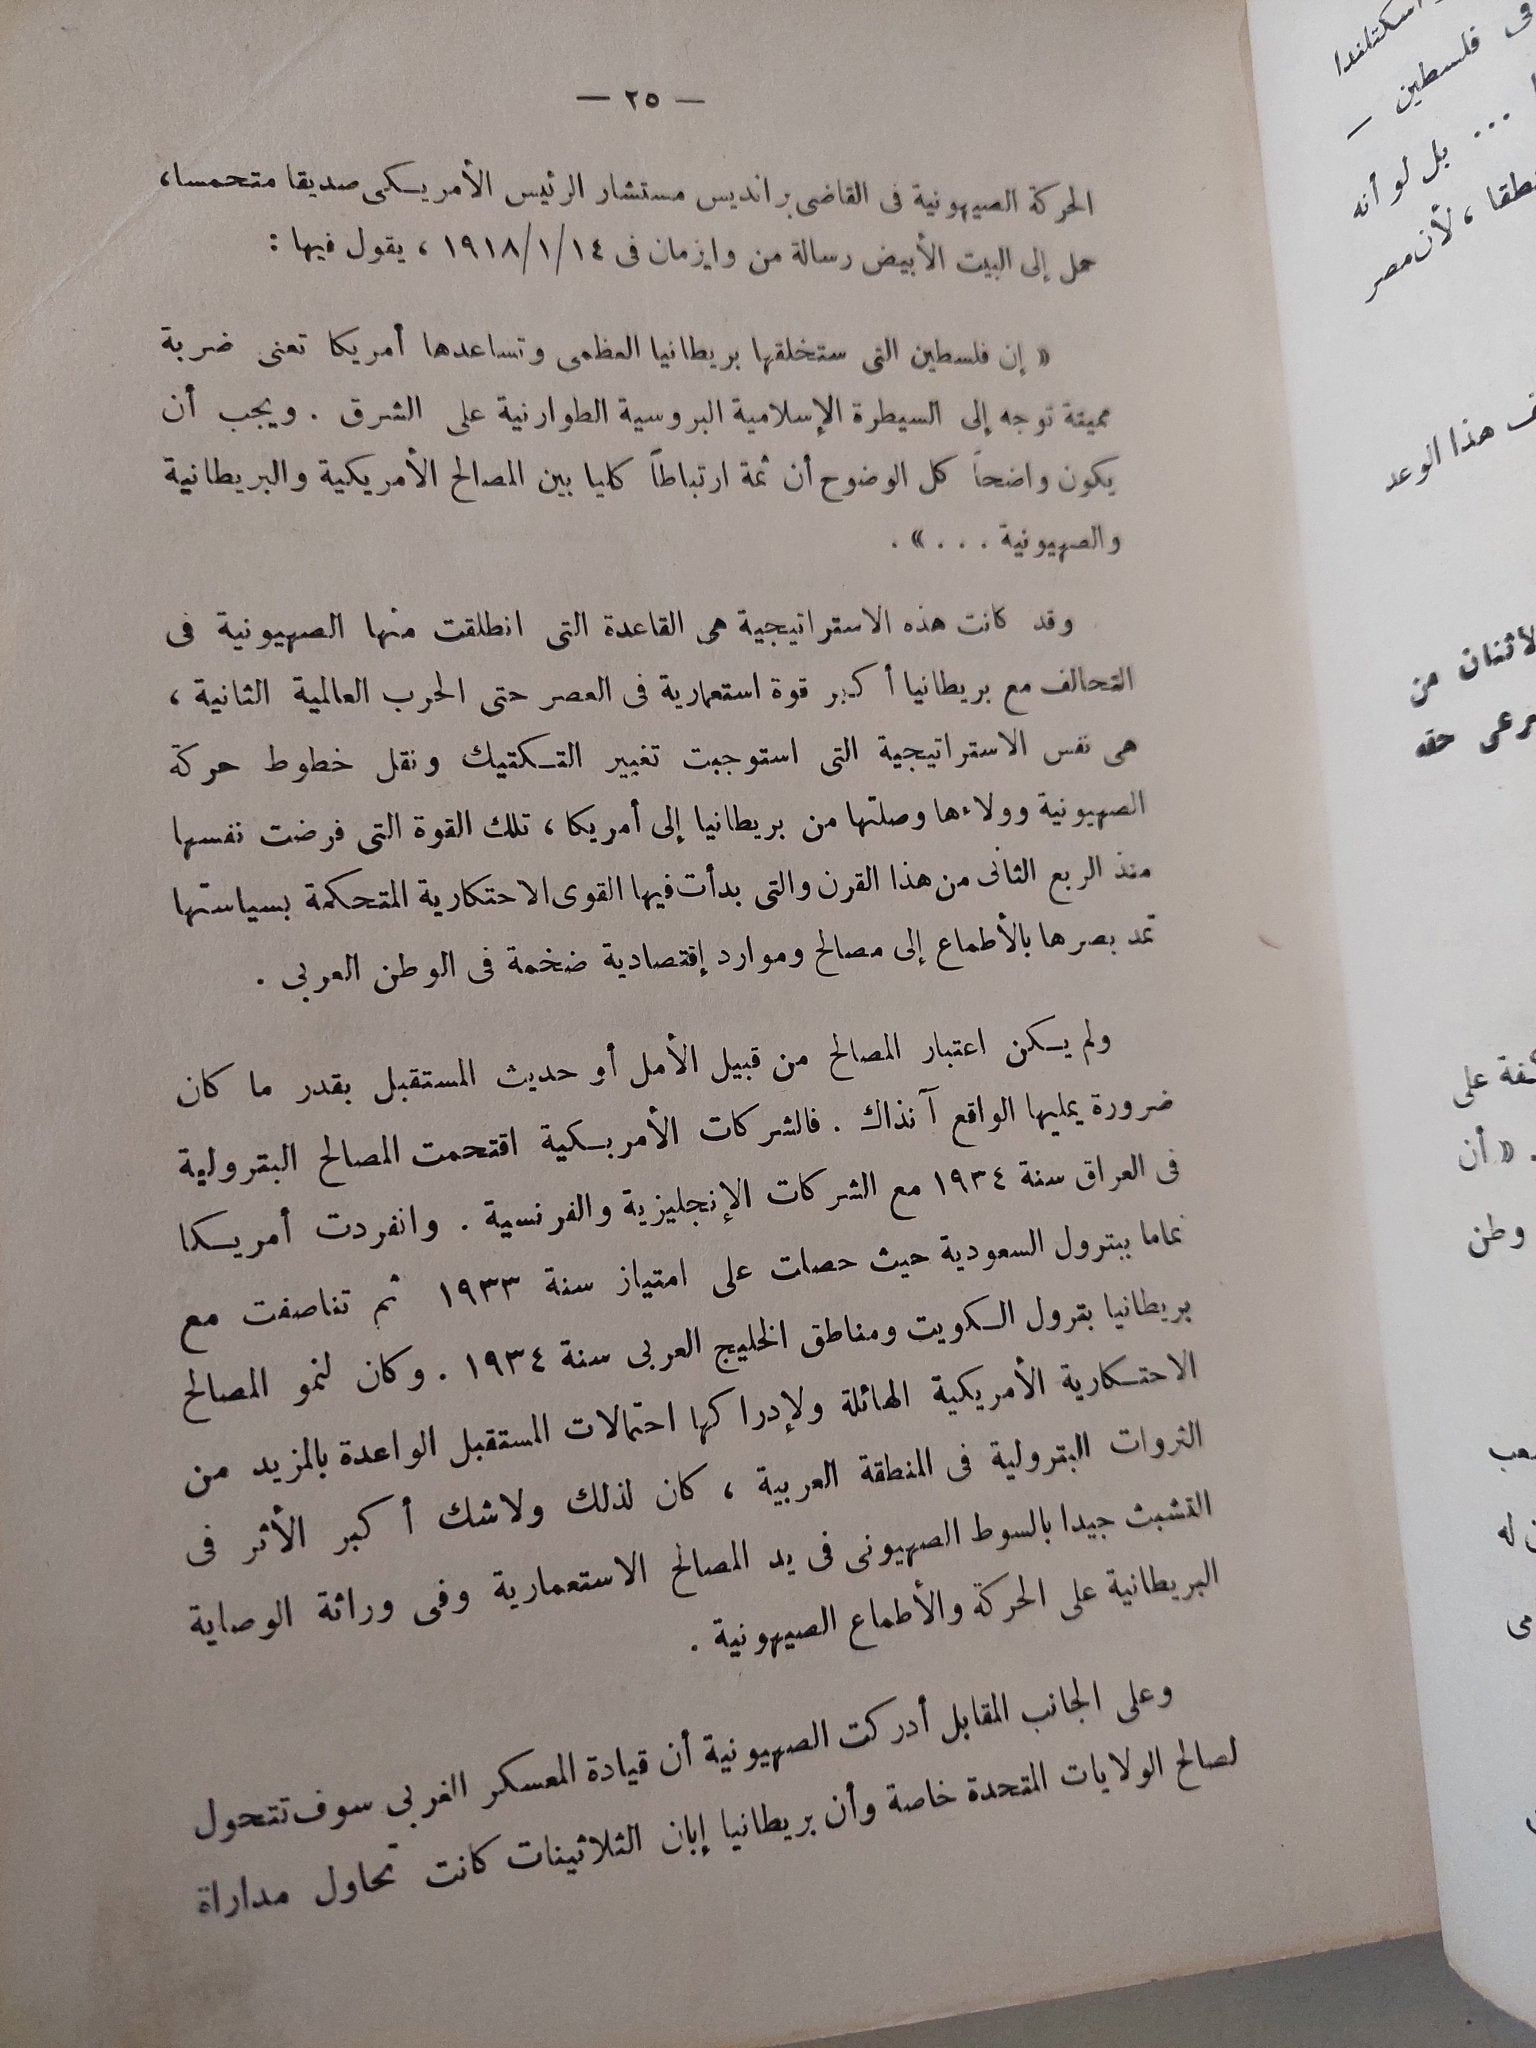 — ٢٥ —
الحركة الصهيونية فى القاضى برانديس مستشار الرئيس الأمريكى صديقا متحمسا،
حمل إلى البيت الأبيض رسالة من وايزمان فى ١٩١٨/١/١٤ ، يقول فيها :
« إن فلسطين التى ستخلقها بريطانيا العظمى وتساعدها أمريكا تعنى ضربة
مميتة توجه إلى السيطرة الإسلامية البروسية الطوارنية على الشرق . ويجب أن
يكون واضحاً كل الوضوح أن ثمة ارتباطاً كليا بين المصالح الأمريكية والبريطانية
والصهيونية . . . » .
وقد كانت هذه الاستراتيجية هى القاعدة التى انطلقت منها الصهيونية فى
التحالف مع بريطانيا أكبر قوة استعمارية فى العصر حتى الحرب العالمية الثانية ،
هى نفس الاستراتيجية التى استوجبت تغيير التكتيك ونقل خطوط حركة
الصهيونية وولاءها وصلتها من بريطانيا إلى أمريكا ، تلك القوة التى فرضت نفسها
منذ الربع الثانى من هذا القرن والتى بدأت فيها القوى الاحتكارية المتحكمة بسياستها
تمد بصرها بالأطماع إلى مصالح وموارد إقتصادية ضخمة فى الوطن العربى .
ولم يكن اعتبار المصالح من قبيل الأمل أو حديث المستقبل بقدر ما كان
ضرورة يمليها الواقع آنذاك . فالشركات الأمريكية اقتحمت المصالح البترولية
فى العراق سنة ١٩٣٤ مع الشركات الإنجليزية والفرنسية . وانفردت أمريكا
تماما ببترول السعودية حيث حصلت على امتياز سنة ١٩٣٣ ثم تناصفت مع
بريطانيا بترول الكويت ومناطق الخليج العربى سنة ١٩٣٤ . وكان لنمو المصالح
الاحتكارية الأمريكية الهائلة ولإدراكها احتمالات المستقبل الواعدة بالمزيد من
الثروات البترولية فى المنطقة العربية ، كان لذلك ولاشك أكبر الأثر فى
التشبث جيدا بالسوط الصهيونى فى يد المصالح الاستعمارية وفى وراثة الوصاية
البريطانية على الحركة والأطماع الصهيونية .
وعلى الجانب المقابل أدركت الصهيونية أن قيادة المعسكر الغربى سوف تتحول
لصالح الولايات المتحدة خاصة وأن بريطانيا إبان الثلاثينات كانت تحاول مداراة
اسكتلندا
فى فلسطين —
... بل لو أنه
لأن مصر
هذا الوعد
من
حقه
على
. « أن
وطن
له